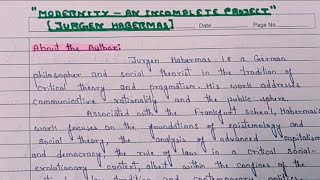 "MODERNITY – AN INCOMPLETE PROJECT"
[JURGEN HABERMAS]
Date
Page No.
About the Author:
Jurgen Habermas is a German
philosopher and social theorist in the tradition of
critical theory and pragmatism. His work addresses
communicative rationality and the public sphere.
Associated with the Frankfurt School, Habermas's
work focuses on the foundations of epistemology and
social theory, the analysis of advanced capitalism
and democracy, the rule of law in a critical social-
evolutionary context, albeit within the confines of the
contemporary politics